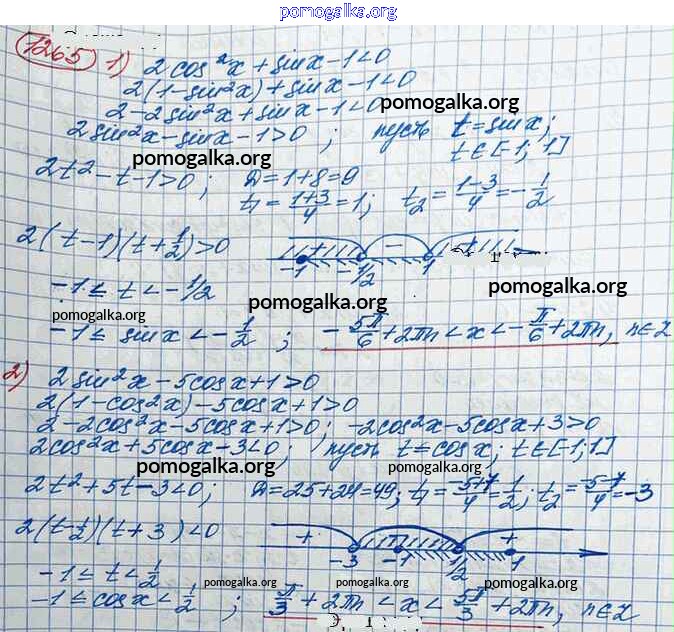 pomogalka.org
1265) 1) 2cos²x + sinx - 1 < 0
2(1 - sin²x) + sinx - 1 < 0
2 - 2sin²x + sinx - 1 < 0 pomogalka.org
2sin²x - sinx - 1 > 0 ; пусть t = sinx;
pomogalka.org t ∈ [-1; 1]
2t² - t - 1 > 0 ; D = 1+8 = 9
t₁ = (1+3)/4 = 1; t₂ = (1-3)/4 = -1/2
pomogalka.org
2(t-1)(t+1/2) > 0 + - + -1 -1/2 1
-1 ≤ t < -1/2 pomogalka.org
pomogalka.org pomogalka.org
-1 ≤ sinx < -1/2 ; -5π/6 + 2πn < x < -π/6 + 2πn, n∈Z
2) 2sin²x - 5cosx + 1 > 0
2(1 - cos²x) - 5cosx + 1 > 0
2 - 2cos²x - 5cosx + 1 > 0; -2cos²x - 5cosx + 3 > 0
2cos²x + 5cosx - 3 < 0; пусть t = cosx; t∈[-1; 1]
pomogalka.org pomogalka.org
2t² + 5t - 3 < 0; D = 25+24 = 49; t₁ = (-5+7)/4 = 1/2; t₂ = (-5-7)/4 = -3
2(t-1/2)(t+3) < 0 + + -3 -1 1/2 1
-1 ≤ t < 1/2 pomogalka.org pomogalka.org pomogalka.org
-1 ≤ cosx < 1/2 ; π/3 + 2πn < x < 5π/3 + 2πn, n∈Z